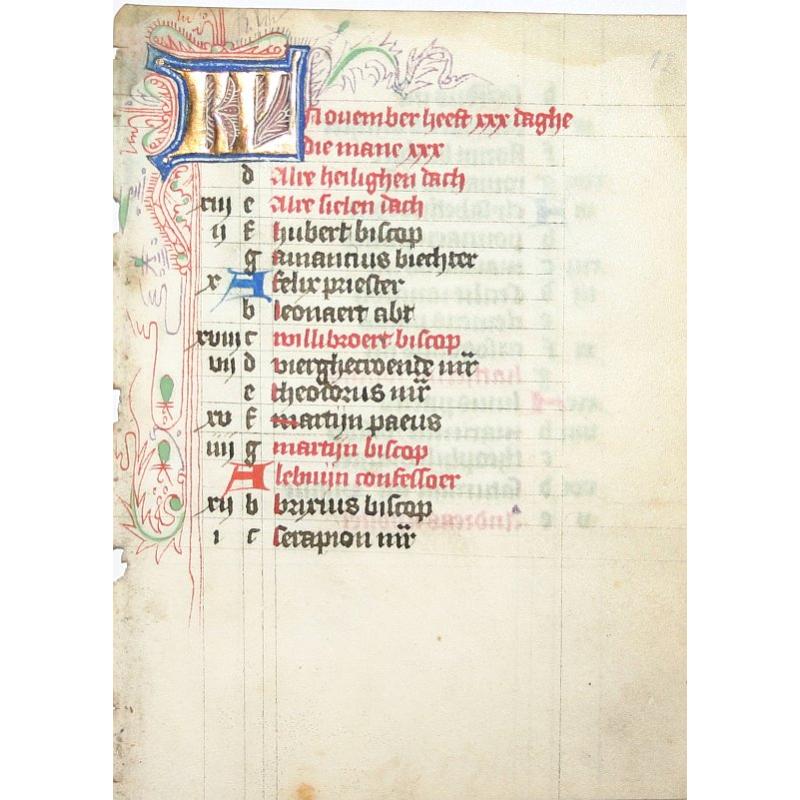 KL
Nouember heeft xxx daghe
die mane xxx
d Alre heilighen dach
xiij e Alre sielen dach
ij f hubert biscop
g amancius biechter
x A felix priester
b leonaert abt
xviij c willibroert biscop
vij d vierghecroende mr̄
e theodorus mr̄
xv f martijn paeus
iiij g martijn biscop
A lebuijn confessoer
xij b brixius biscop
i c serapion mr̄
12